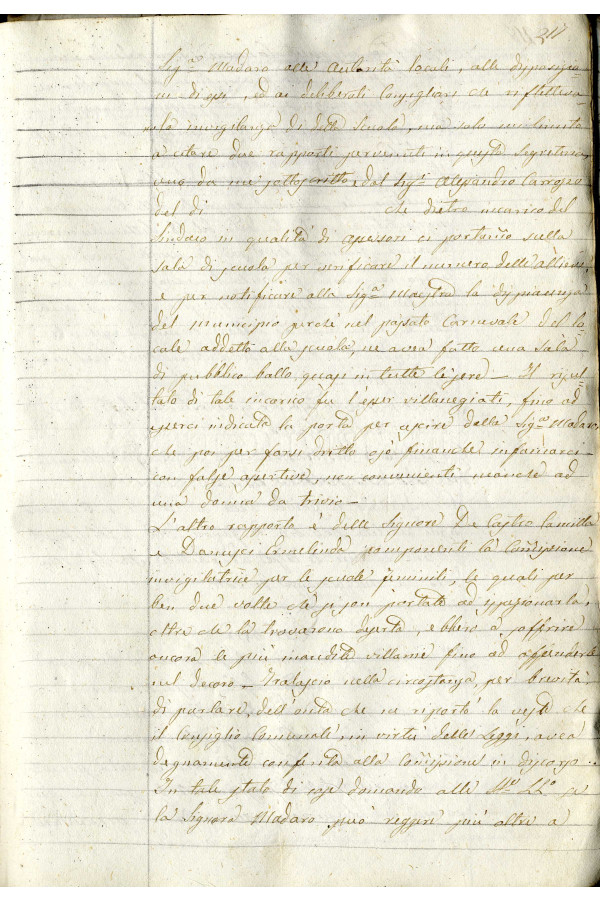 Sig.ra Madaro alle Autorità locali, alle disposizio=
ni di essi, ed ai deliberati Consigliari che rifletteva=
no la invigilanza di dette Scuole, ma solo
a citare due rapporti pervenuti in questa Segreteria
uno da me sottoscritto, e dal Sig.r Alessandro Carrozzo
del dì che dietro incarico del
Sindaco in qualità di assessori ci portammo sulla
sala di scuola per verificare il numero delle allieve,
e per notificare alla Sig.ra Maestra la dispiacenza
del Municipio perchè nel passato Carnevale del lo
cale addetto alla scuola, ne avea fatto una sala
di pubblico ballo, quasi in tutte le sere – Il risul=
tato di tale incarico fu l'esser villanegiati, fino ad
esserci indicata la porta per uscire dalla Sig.ra Madaro,
che poi per farsi dritto osò financhè infamarci
con false assertive, non convenienti manche ad
una donna da trivio –
L'altro rapporto è delle Signore De Castro Camilla
e Danusci Ermelinda componenti la Commissione
invigilatrice per le scuole feminili, le quali per
ben due volte che si son portate ad ispezionarla,
oltre che la trovarono deserta, ebbero a sofferire
ancora le più inaudite villanie fino ad offenderle
nel decoro – Tralascio nella circostanza, per brevità
di parlare, dell'onta che ne riportò la veste che
il Consiglio Comunale, in virtù delle Leggi, avea
degnamente conferita alla Commissione in discorso.
In tale stato di cose domando alle LL. se
la Signora Madaro può reggere più oltre a